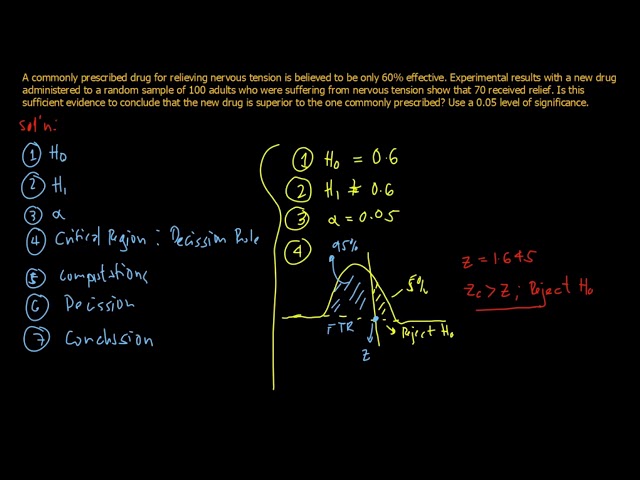 A commonly prescribed drug for relieving nervous tension is believed to be only 60% effective. Experimental results with a new drug
administered to a random sample of 100 adults who were suffering from nervous tension show that 70 received relief. Is this
sufficient evidence to conclude that the new drug is superior to the one commonly prescribed? Use a 0.05 level of significance.
sol'n:
1 H0
2 H1
3 α
4 Critical Region : Decission Rule
5 computations
6 Decission
7 Conclusion
1 H0 = 0.6
2 H1 ≠ 0.6
3 α = 0.05
4
95%
5%
FTR
Reject H0
z
z = 1.645
Zc > Z ; Reject H0